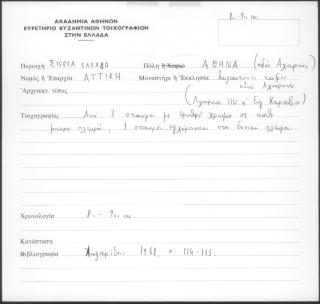 ΑΚΑΔΗΜΙΑ ΑΘΗΝΩΝ
ΕΥΡΕΤΗΡΙΟ ΒΥΖΑΝΤΙΝΩΝ ΤΟΙΧΟΓΡΑΦΙΩΝ
ΣΤΗΝ ΕΛΛΑΔΑ
8ος - 9ος αι.
Περιοχή ΣΤΕΡΕΑ ΕΛΛΑΔΑ Πόλη ή Χωριό ΑΘΗΝΑ (οδός Αχαρνών)
Νομός ή Ἐπαρχία ΑΤΤΙΚΗ Μοναστήρι ή Ἐκκλησία βυζαντινός τάφος
οδός Αχαρνών
Ἀρχιτεκτ. τύπος (Αχαρνών 110 & Ευγ. Καραβία)
Τοιχογραφίες Ανά 3 σταυροί με ερυθρό χρώμα σε κάθε
μακρά πλευρά, 1 σταυρός εγχάρακτος στη δυτική πλευρά
Χρονολογία 8ος - 9ος αι.
Κατάσταση
Βιβλιογραφία 1968, σ. 114-115